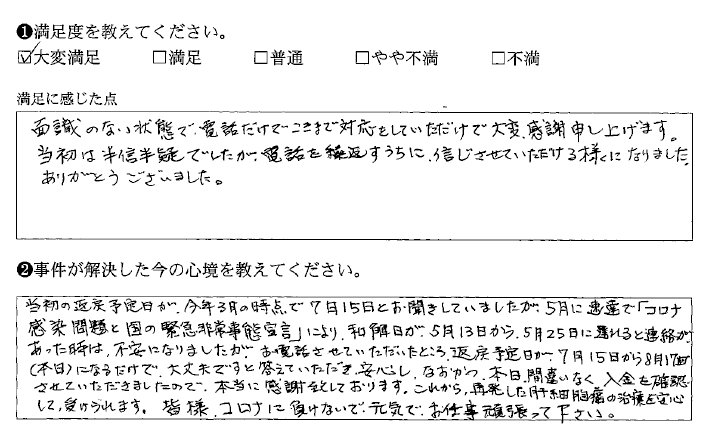 ❶満足度を教えてください。
☑大変満足 □満足 □普通 □やや不満 □不満
満足に感じた点
面識のない状態で、電話だけでここまで対応をしていただけで大変、感謝申し上げます。
当初は半信半疑でしたが、電話を繰返すうちに、信じさせていただける様に なりました。
ありがとうございました。
❷事件が解決した今の心境を教えてください。
当初の返戻予定日が、今年3月の時点で7月15日とお聞きしていましたが、5月に 送達で「コロナ
感染問題と国の緊急非常事態宣言」により、和解日が、5月13日から、5月25日に遅れると連絡が
あった時は、不安になりましたが、お電話させていただいたところ、返戻予定日が、7月15日から8月17日
(本日)になるだけで、大丈夫ですと答えていただき、安心し、なおかつ、本日、間違いなく、入金を確認
させていただきましたので、本当に感謝しております。これから、再発した肝細胞癌の治療を安心
して、受けられます。 皆様、コロナに負けないで、元気で、お仕事頑張って下さい。